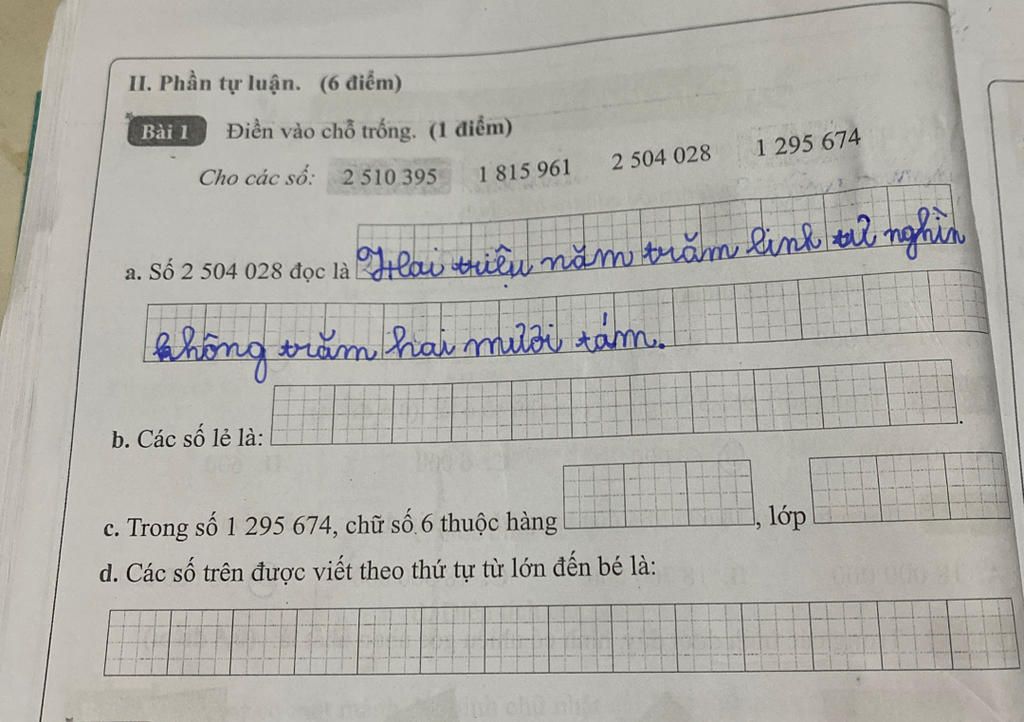 II. Phần tự luận. (6 điểm)
Bài 1 Điền vào chỗ trống. (1 điểm)
Cho các số: 2 510 395 1 815 961 2 504 028 1 295 674
a. Số 2 504 028 đọc là Hai triệu năm trăm linh tư nghìn
không trăm hai mươi tám.
b. Các số lẻ là: .
c. Trong số 1 295 674, chữ số 6 thuộc hàng , lớp
d. Các số trên được viết theo thứ tự từ lớn đến bé là: